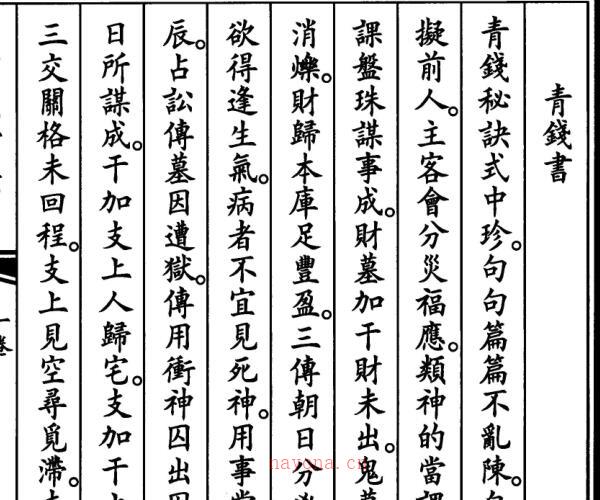 青錢書
青錢秘訣式中珍。句句篇篇不亂陳。
擬前人。主客會分災福應。類神的當課
課盤珠謀事成。財墓加干財未出。鬼墓
消爍。財歸本庫足豐盈。三傳朝日分
欲得逢生氣。病者不宜見死神。用事
辰。占訟傳墓因遭獄。傳用衝神囚出
日所謀成。干加支上人歸宅。支加干上
三交關格未回程。支上見空尋覓滯。
一卷
nayona.cn